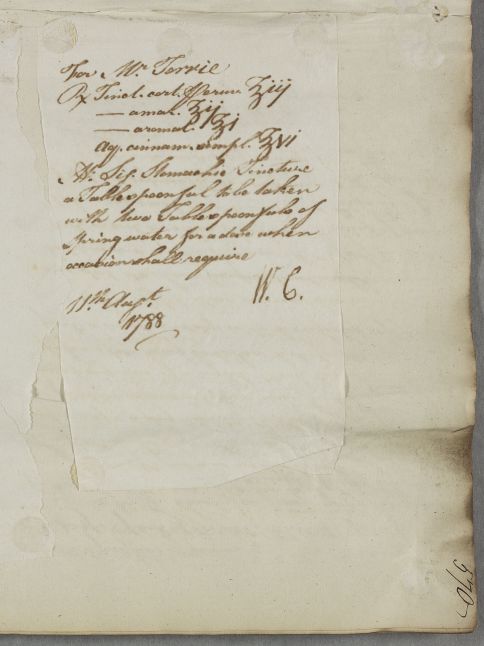 For Mr. Torrie
℞ Tinct. cort. Peruv. ℥iij
— amar. ℥ij
— aromat. ℥i
Aq. cinnam. simpl. ℥vi
M. Sig. Stomachic Tincture
a Tablespoonful to be taken
with two Tablespoonfuls of
Spring water for a dose when
occasion shall require
W. C.
11th. Augt.
1788